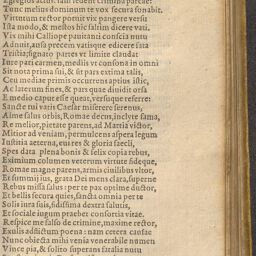 Tunc melius dominum te vox secura sonabit.
Virtutum rector pomit vix pangere versu
Ista modo, & mestos hic saltim dicere vati,
Vix mihi Calliope pauitanti conscia nutu
Adnuit, ausa precem vatisque edicere fata
Tristia, signato partes vt limite claudat
Iure pari carmen, mediis vt consona in omni
Sit nota prima sui, & sit pars extima talis,
Ceu mediae primis occurrens aptius istic,
Ac laterum fines, & pars quae diuidit orsa
E medio caput esse queat, versuque referret
Sancte tui vatis Caesar miserere serenus,
Alme salus orbis, Romae decus, inclyte fama,
Re melior, pietate parens, ad Martia victor,
Mitior ad veniam, permulcens aspera legum
Iustitia aeterna, eu res & gloria saecli,
Spes data plena bonis & felix copia rebus,
Eximium columen veterum virtute fideque,
Romae magne parens, armis ciuilibus vltor,
Et summi ius, grata Dei mens clara, superne
Rebus missa salus: per te pax optime ductor,
Et bellis secura quies, sancta omnia per te
Solis iura suis, fidissima dextra salutis,
Et sociale iugum praebet consortia vitae.
Respice me falso de crimine, maxime rector,
Exulis addictum poena: nam cetera causae
Nunc obiecta mihi venia venerabile numen
Vince pia, & solito superans fatalia nutu